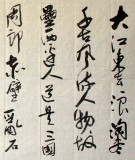 大江東去浪淘盡
千古風流人物故
壘西邊人道是三國
周郎赤壁亂石